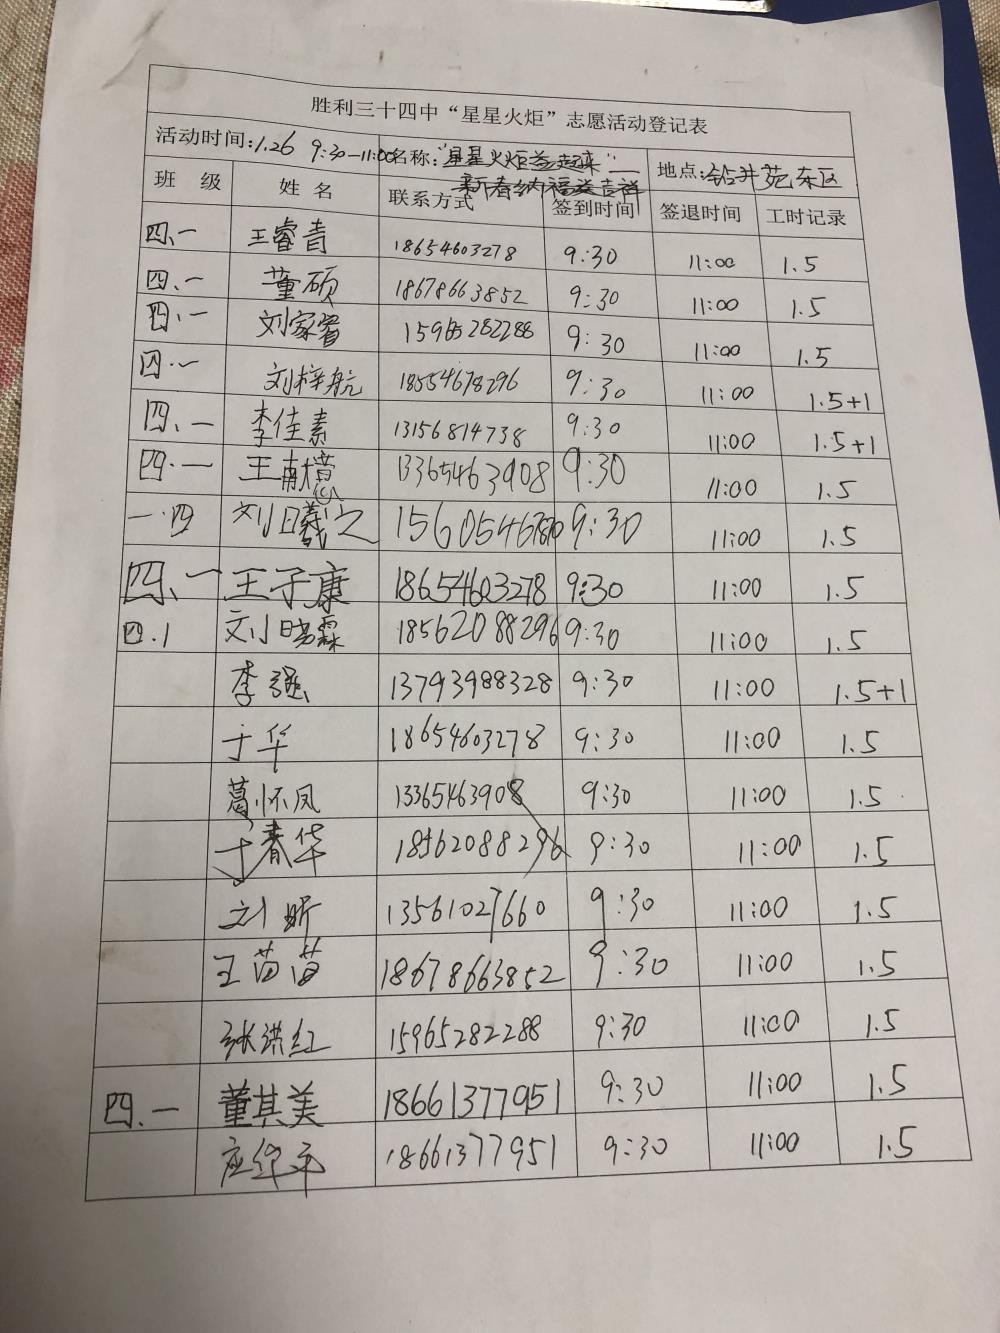 胜利三十四中“星星火炬”志愿活动登记表
活动时间:1.26 9:30—11:00 名称:“星星火炬益起来”— 地点:钻井苑东区
新春纳福送吉祥
班 级 姓 名 联系方式 签到时间 签退时间 工时记录
四、一 王睿青 18654603278 9:30 11:00 1.5
四.一 董硕 18678663852 9:30 11:00 1.5
四.一 刘家睿 15965282288 9:30 11:00 1.5
四.一 刘梓航 18554678296 9:30 11:00 1.5+1
四、一 李佳素 13156814738 9:30 11:00 1.5+1
四.一 王献 13365463908 9:30 11:00 1.5
一.四 刘曦之 9:30 11:00 1.5
四、一 王子康 18654603278 9:30 11:00 1.5
四.1 刘晓霖 18562088296 9:30 11:00 1.5
李强 13793988328 9:30 11:00 1.5+1
于华 18654603278 9:30 11:00 1.5
葛怀凤 13365463908 9:30 11:00 1.5
于春华 18562088296 9:30 11:00 1.5
刘昕 13561027660 9:30 11:00 1.5
王苗苗 18678663852 9:30 11:00 1.5
张洪红 15965282288 9:30 11:00 1.5
四.一 董其美 18661377951 9:30 11:00 1.5
18661377951 9:30 11:00 1.5